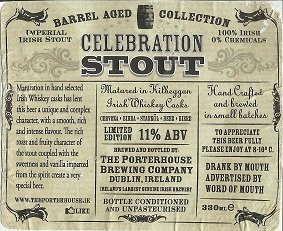 BARREL AGED COLLECTION
IMPERIAL
IRISH STOUT
100% IRISH
0% CHEMICALS
CELEBRATION
STOUT
Maturation in hand selected
Irish Whiskey casks has lent
this beer a unique and complex
character, with a smooth, rich
and intense flavour. The rich
roast and fruity character of
the stout coupled with the
sweetness and vanilla imparted
from the spirit create a very
special beer.
WWW.THEPORTERHOUSE.IE
LIKE
Matured in Kilbeggan
Irish Whiskey Casks
CERVEZA • BIRRA • STARKÖL • BEER • BIERE
LIMITED
EDITION
11% ABV
BREWED AND BOTTLED BY:
THE PORTERHOUSE
BREWING COMPANY
DUBLIN, IRELAND
IRELAND'S LARGEST GENUINE IRISH BREWERY
BOTTLE CONDITIONED
AND UNPASTEURISED
Hand Crafted
and brewed
in small batches
TO APPRECIATE
THIS BEER FULLY
PLEASE ENJOY AT 8-10° C.
DRANK BY MOUTH
ADVERTISED BY
WORD OF MOUTH
330ML e